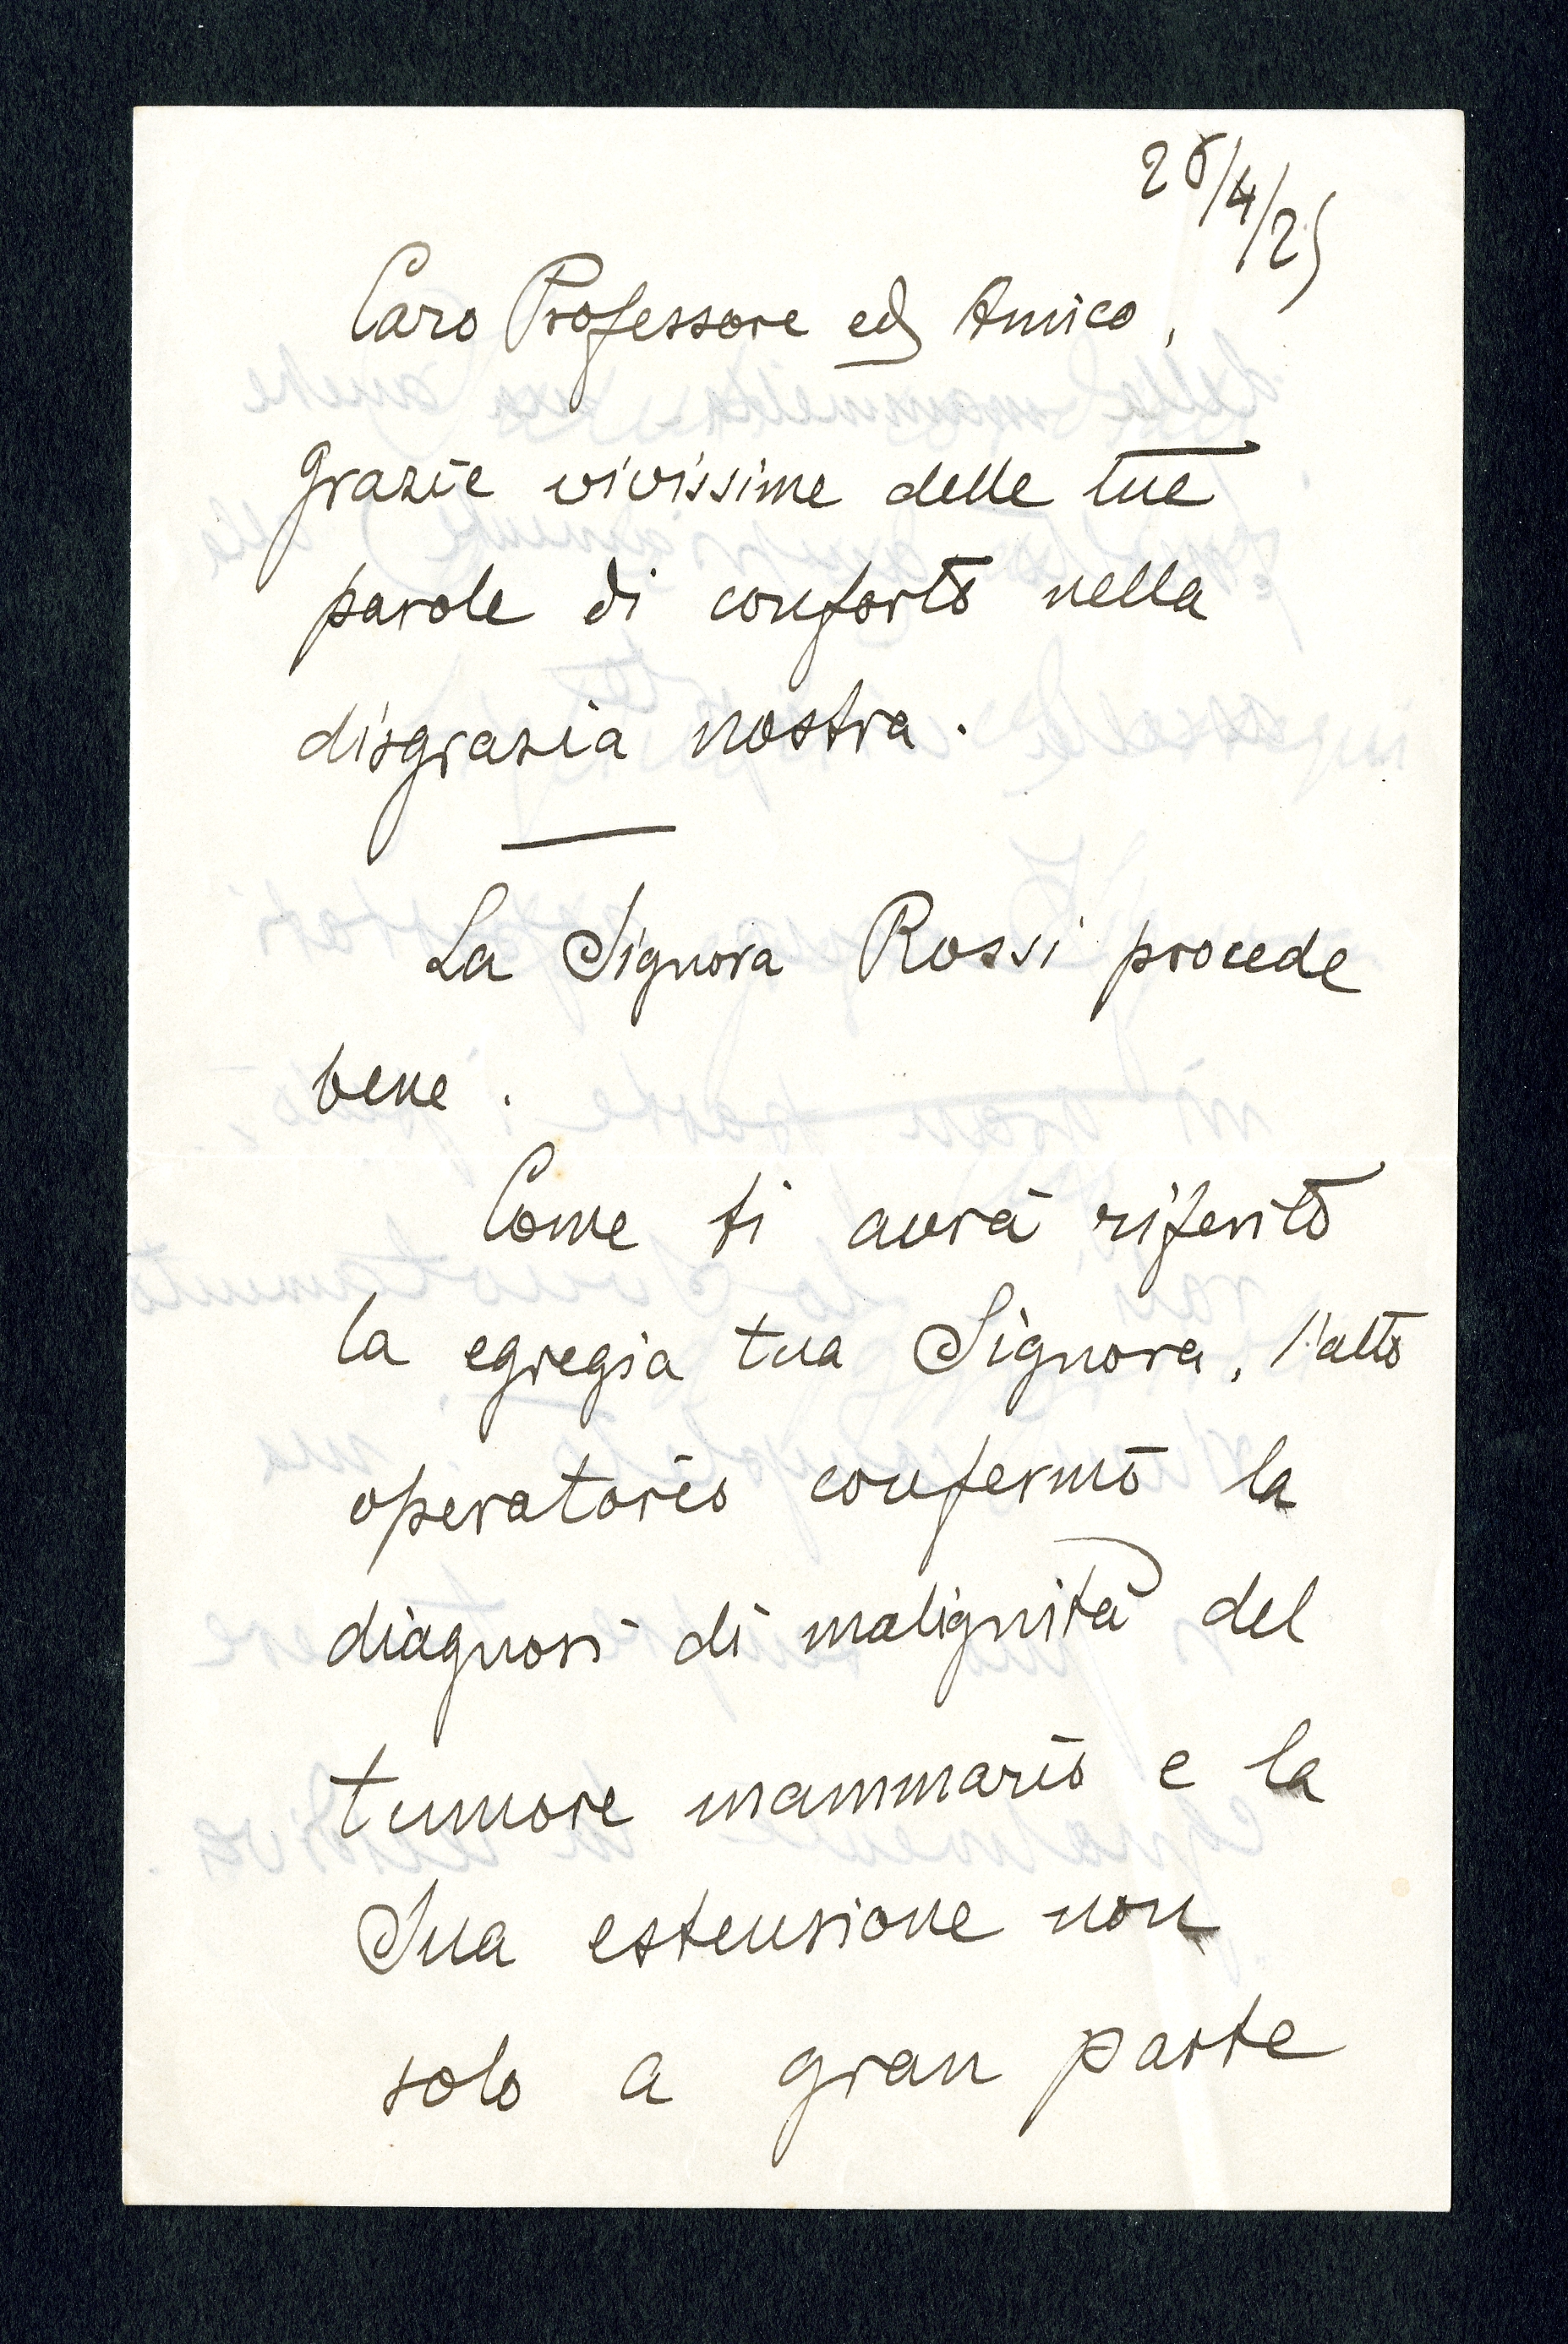 26/4/25
Caro Professore ed Amico,
Grazie vivissime delle tue
parole di conforto nella
disgrazia nostra.
La Signora Rossi procede
bene.
Come ti avrà riferito
la egregia tua Signora, l'atto
operatorio confermò la
diagnosi di malignità del
tumore mammario e la
Sua estensione non
solo a gran parte